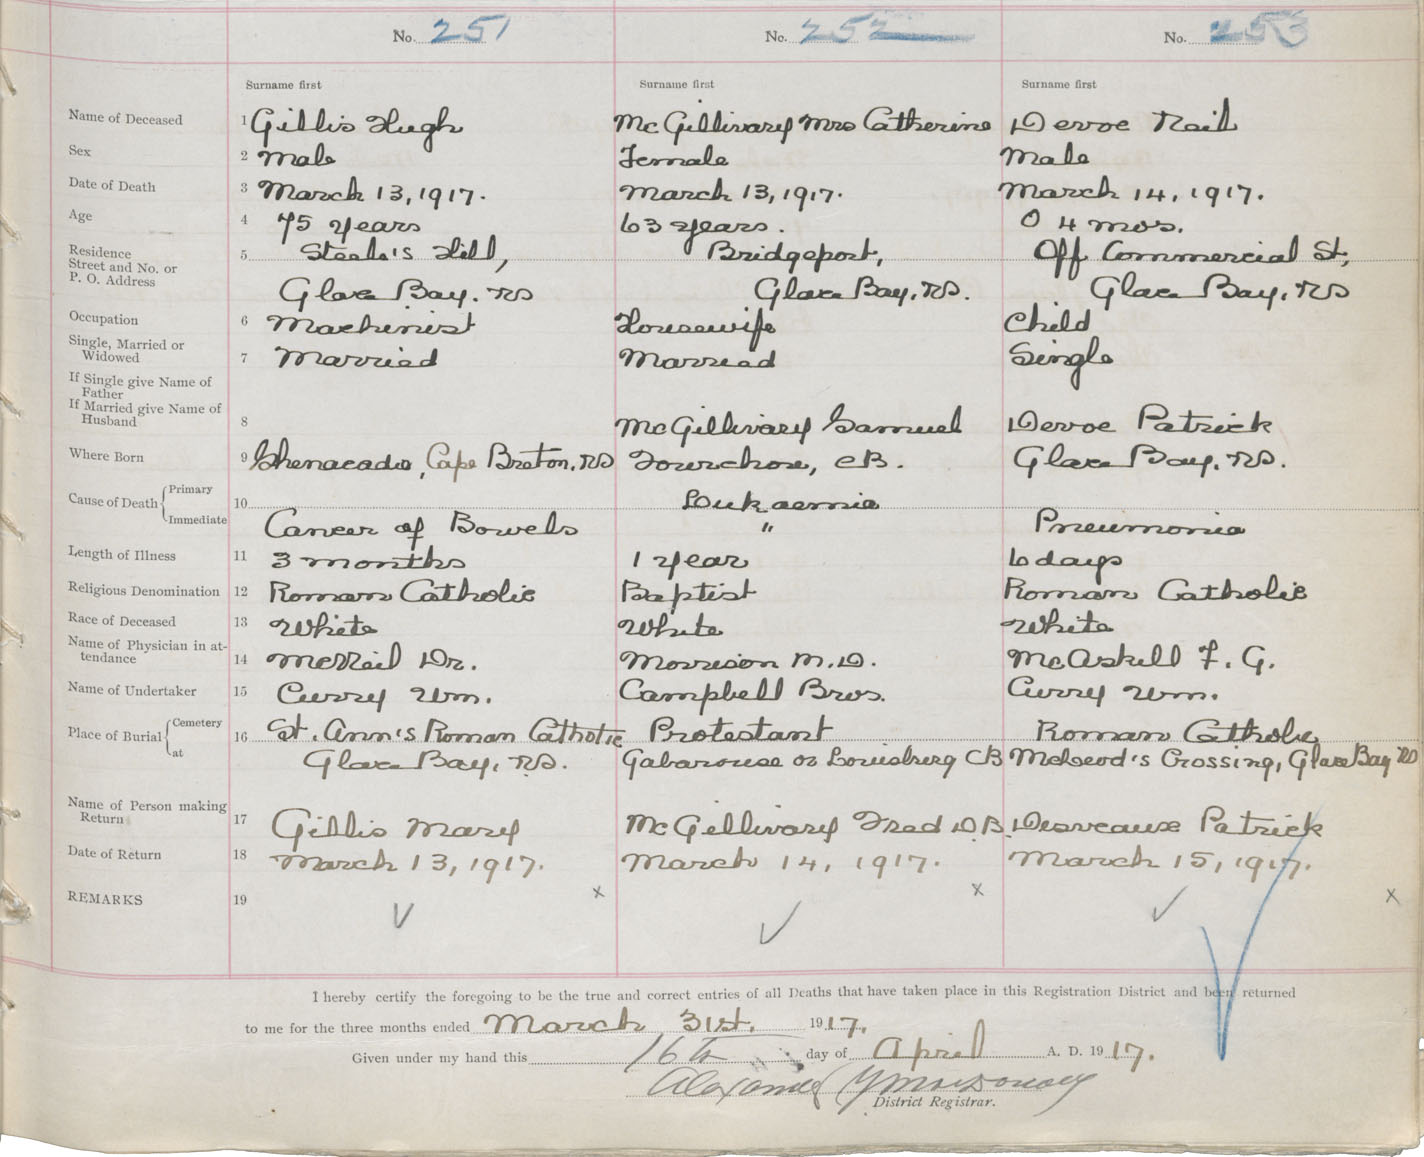 No. 251 No. 252 No. 253
Surname first Surname first Surname first
Name of Deceased 1 Gillis Hugh McGillivary Mrs Catherine Devoe Neil
Sex 2 Male Female Male
Date of Death 3 March 13, 1917. March 13, 1917. March 14, 1917.
Age 4 75 years 63 years. 0 4 mos.
Residence 5 Steele's Hill, Bridgeport, Off Commercial St,
Street and No. or
P. O. Address Glace Bay. NS Glace Bay, NS. Glace Bay, NS
Occupation 6 Machinist Housewife Child
Single, Married or
Widowed 7 Married Married Single
If Single give Name of
Father
If Married give Name of
Husband 8 McGillivary Samuel Devoe Patrick
Where Born 9 Shenacadie, Cape Breton, NS Fourchose, CB. Glace Bay, NS.
Cause of Death { Primary 10 Leukaemia
Immediate Cancer of Bowels " Pneumonia
Length of Illness 11 3 months 1 year 6 days
Religious Denomination 12 Roman Catholic Baptist Roman Catholic
Race of Deceased 13 White White White
Name of Physician in at-
tendance 14 McNeil Dr. Morrison M.D. McAskill F. G.
Name of Undertaker 15 Curry Wm. Campbell Bros. Curry Wm.
Place of Burial { Cemetery 16 St. Ann's Roman Catholic Protestant Roman Catholic
at Glace Bay, NS. Gabarouse or Louisburg CB McLeod's Crossing, Glace Bay NS
Name of Person making
Return 17 Gillis Mary McGillivary Fred D.B. Desveaux Patrick
Date of Return 18 March 13, 1917. March 14, 1917. March 15, 1917.
REMARKS 19
I hereby certify the foregoing to be the true and correct entries of all Deaths that have taken place in this Registration District and been returned
to me for the three months ended March 31st. 1917.
Given under my hand this 16th day of April A. D. 1917.
Alexander
District Registrar.